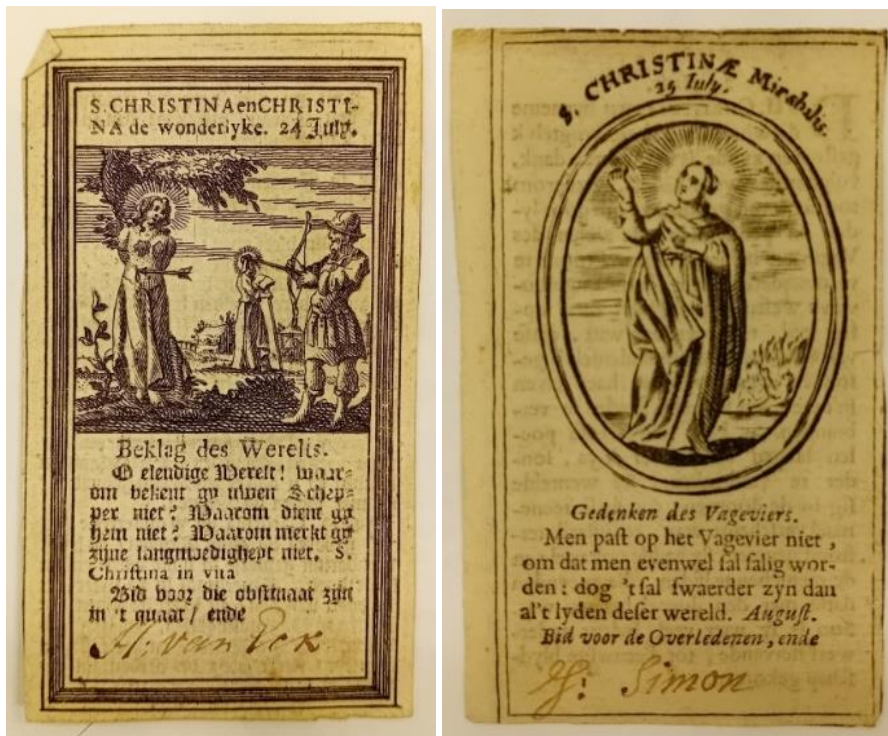 S. CHRISTINA en CHRISTI-
NA de wonderlyke. 24 July.
Beklag des Werelts.
O elendige Werelt! waar-
om bekent gy uwen Schep-
per niet? Waarom dient gy
hem niet? Waarom merkt gy
zijne langmoedigheyt niet. S.
Christina in vita
Bid voor die obstinaat zijn
in 't quaat / ende
H: van Eck
S. CHRISTINÆ Mirabilis.
25 Iuly.
Gedenken des Vageviers.
Men past op het Vagevier niet,
om dat men evenwel sal salig wor-
den: dog 't sal swaerder zyn dan
al't lyden deser wereld. August.
Bid voor de Overledenen, ende
Simon